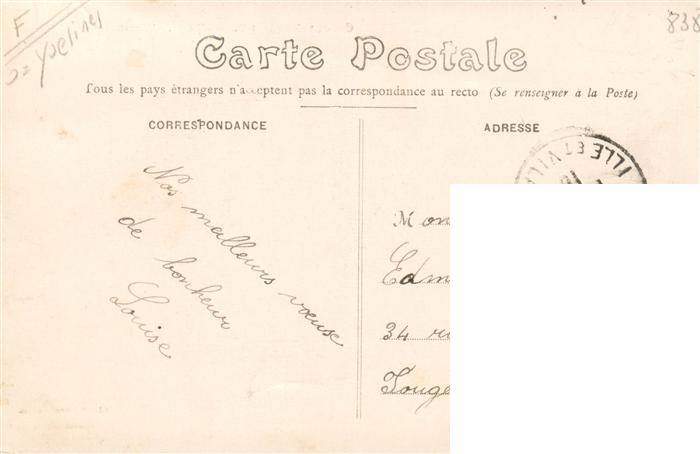 F
Yvelines
838
Carte Postale
Tous les pays étrangers n'acceptent pas la correspondance au recto (Se renseigner à la Poste)
CORRESPONDANCE
ADRESSE
ILLE ET VIL
Nos meilleurs vœuse
de bonheur
Louise
Mon
Edm
34 ru
Fouge